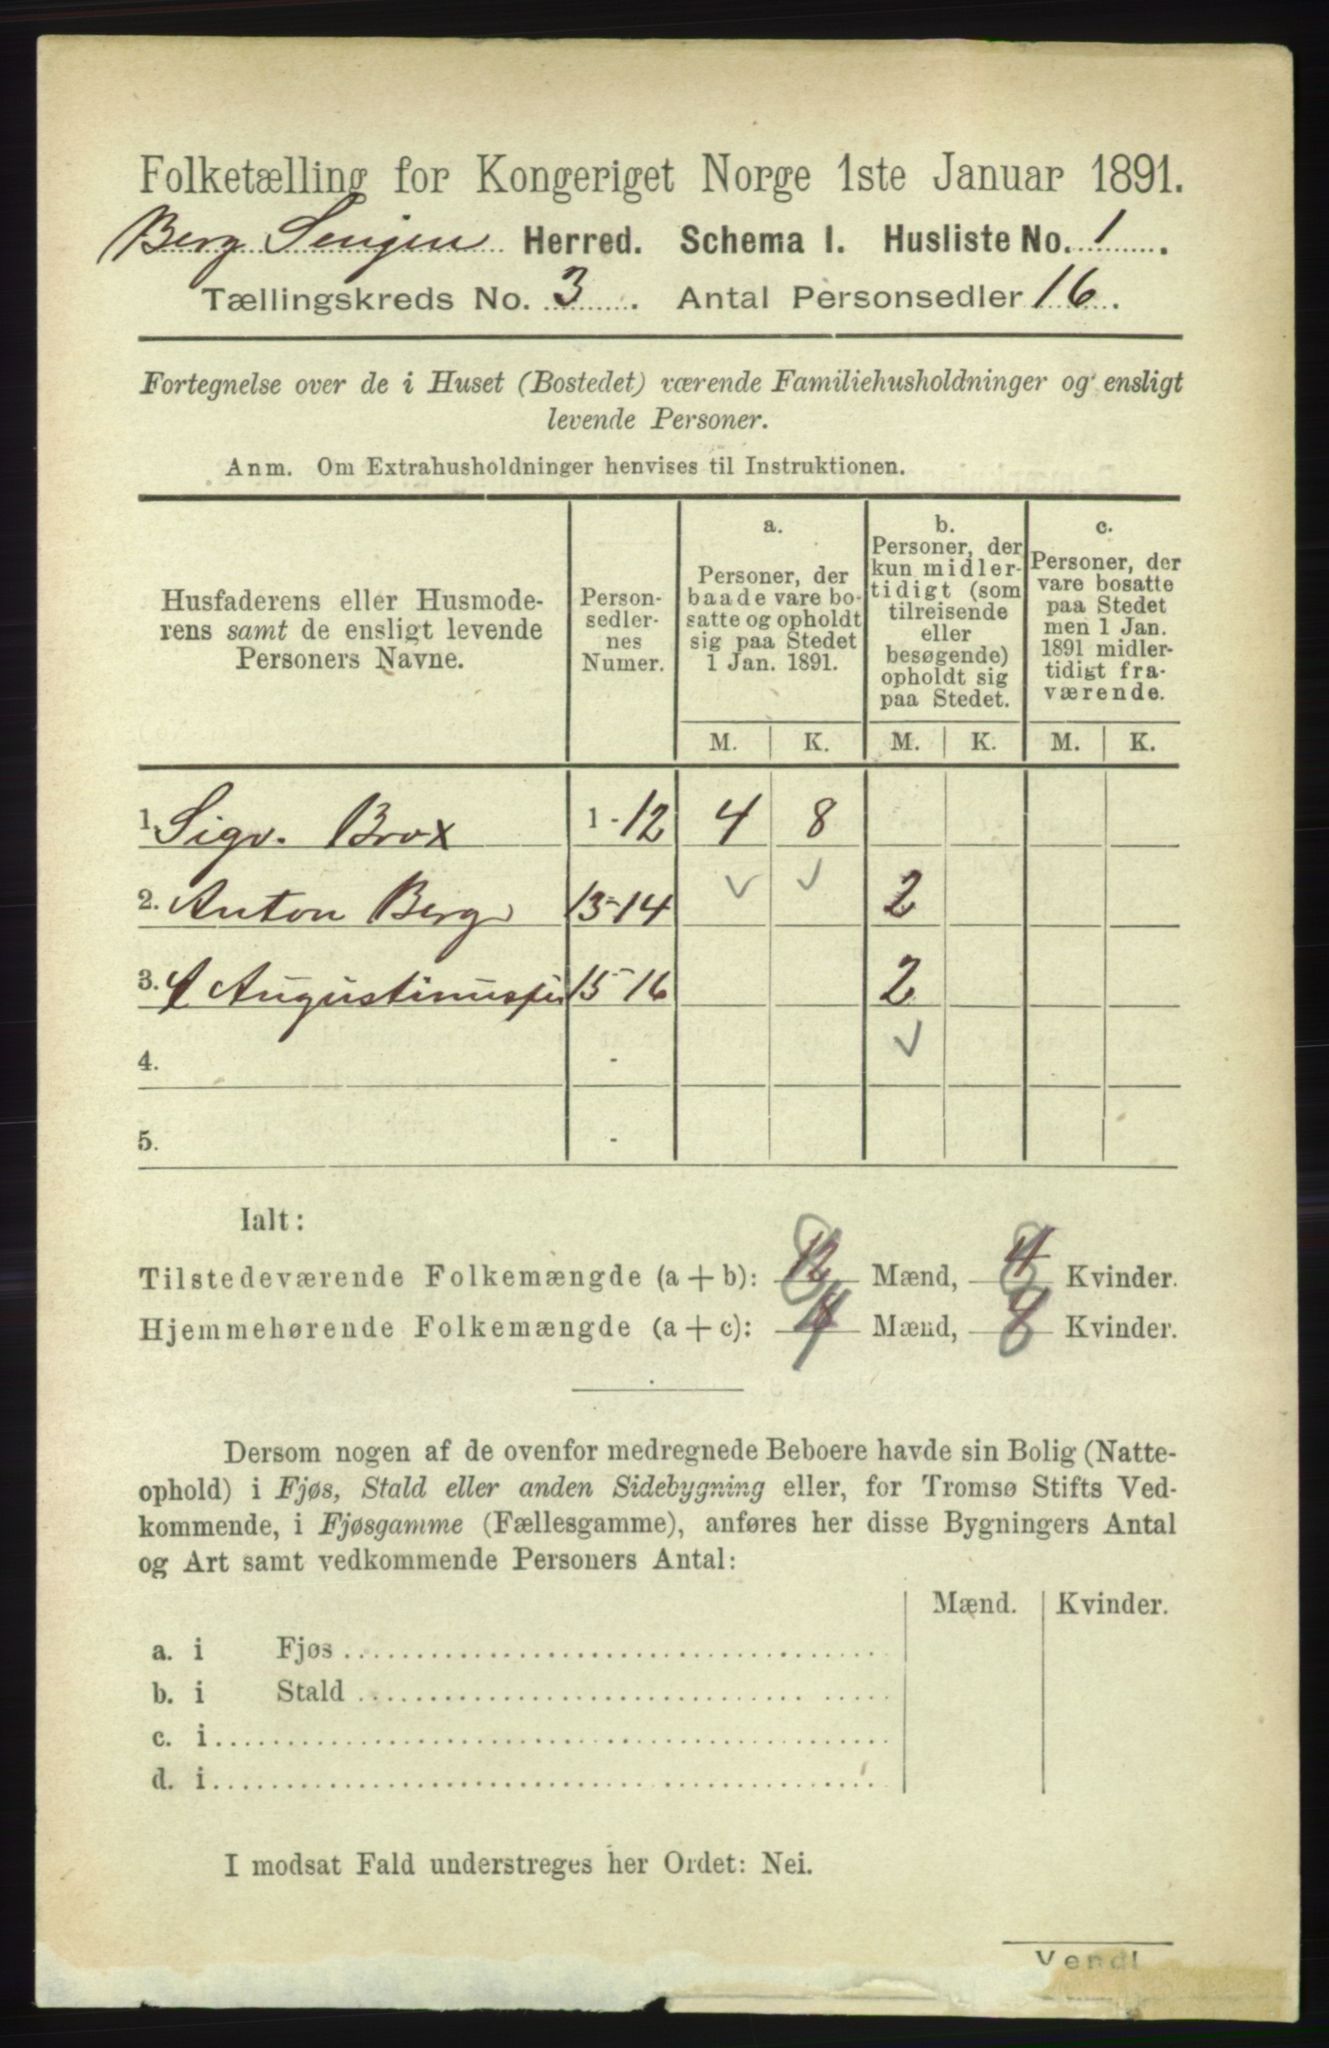 Folketælling for Kongeriget Norge 1ste Januar 1891.
Berg Senjen Herred. Schema I. Husliste No. 1.
Tællingskreds No. 3. Antal Personsedler 16.
Fortegnelse over de i Huset (Bostedet) værende Familiehusholdninger og ensligt
levende Personer.
Anm. Om Extrahusholdninger henvises til Instruktionen.
Husfaderens eller Husmode-
rens samt de ensligt levende
Personers Navne.
Person-
sedler-
nes
Numer.
a.
Personer, der
baade vare bo-
satte og opholdt
sig paa Stedet
1 Jan. 1891.
b.
Personer, der
kun midler-
tidigt (som
tilreisende
eller
besøgende)
opholdt sig
paa Stedet.
c.
Personer, der
vare bosatte
paa Stedet
men 1 Jan.
1891 midler-
tidigt fra-
værende.
M. K. M. K. M. K.
1. Sigv. Brox 1-12 4 8
2. Anton Berg 13-14 2
3. 15-16 2
4. -
5. -
Ialt:
Tilstedeværende Folkemængde (a+b): Mænd, Kvinder.
Hjemmehørende Folkemængde (a+c): Mænd, Kvinder.
Dersom nogen af de ovenfor medregnede Beboere havde sin Bolig (Natte-
ophold) i Fjøs, Stald eller anden Sidebygning eller, for Tromsø Stifts Ved-
kommende, i Fjøsgamme (Fællesgamme), anføres her disse Bygningers Antal
og Art samt vedkommende Personers Antal:
Mænd. Kvinder.
a. i Fjøs
b. i Stald
c. i
d. i
I modsat Fald understreges her Ordet: Nei.
Vend!